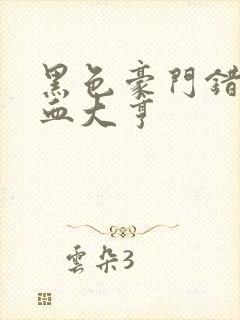 黑色豪門錯
血大亨
雲朵3